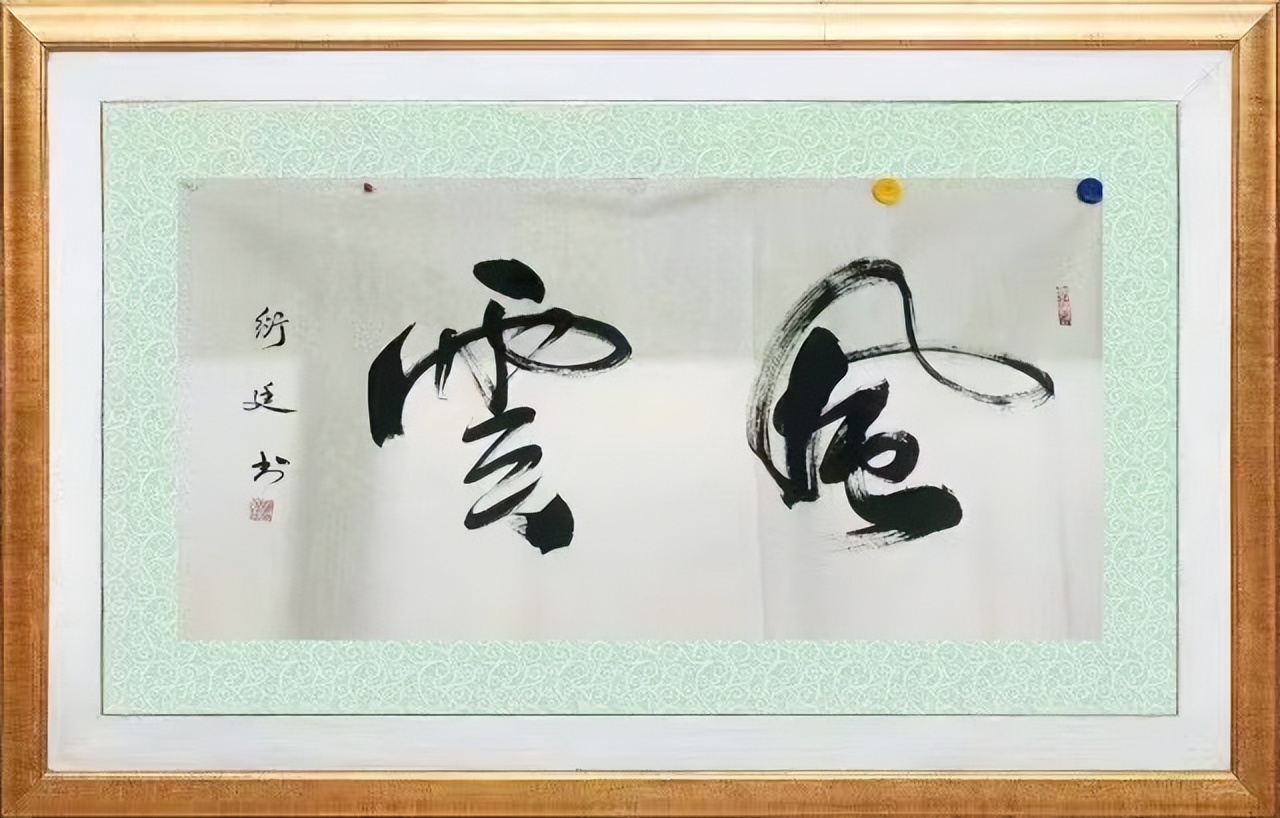 風雲
衍廷书